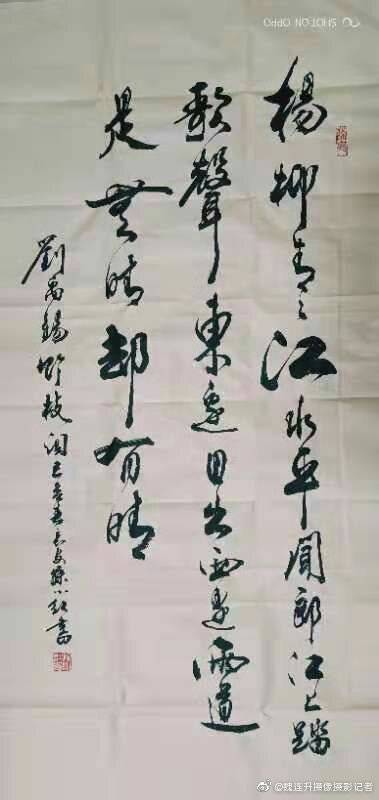 楊柳青〻江水平聞郎江上踏
歌聲東邊日出西邊雨道
是無晴却有晴
劉禹錫竹枝詞己亥春
SHOT ON OPPO
@魏连升摄像摄影记者